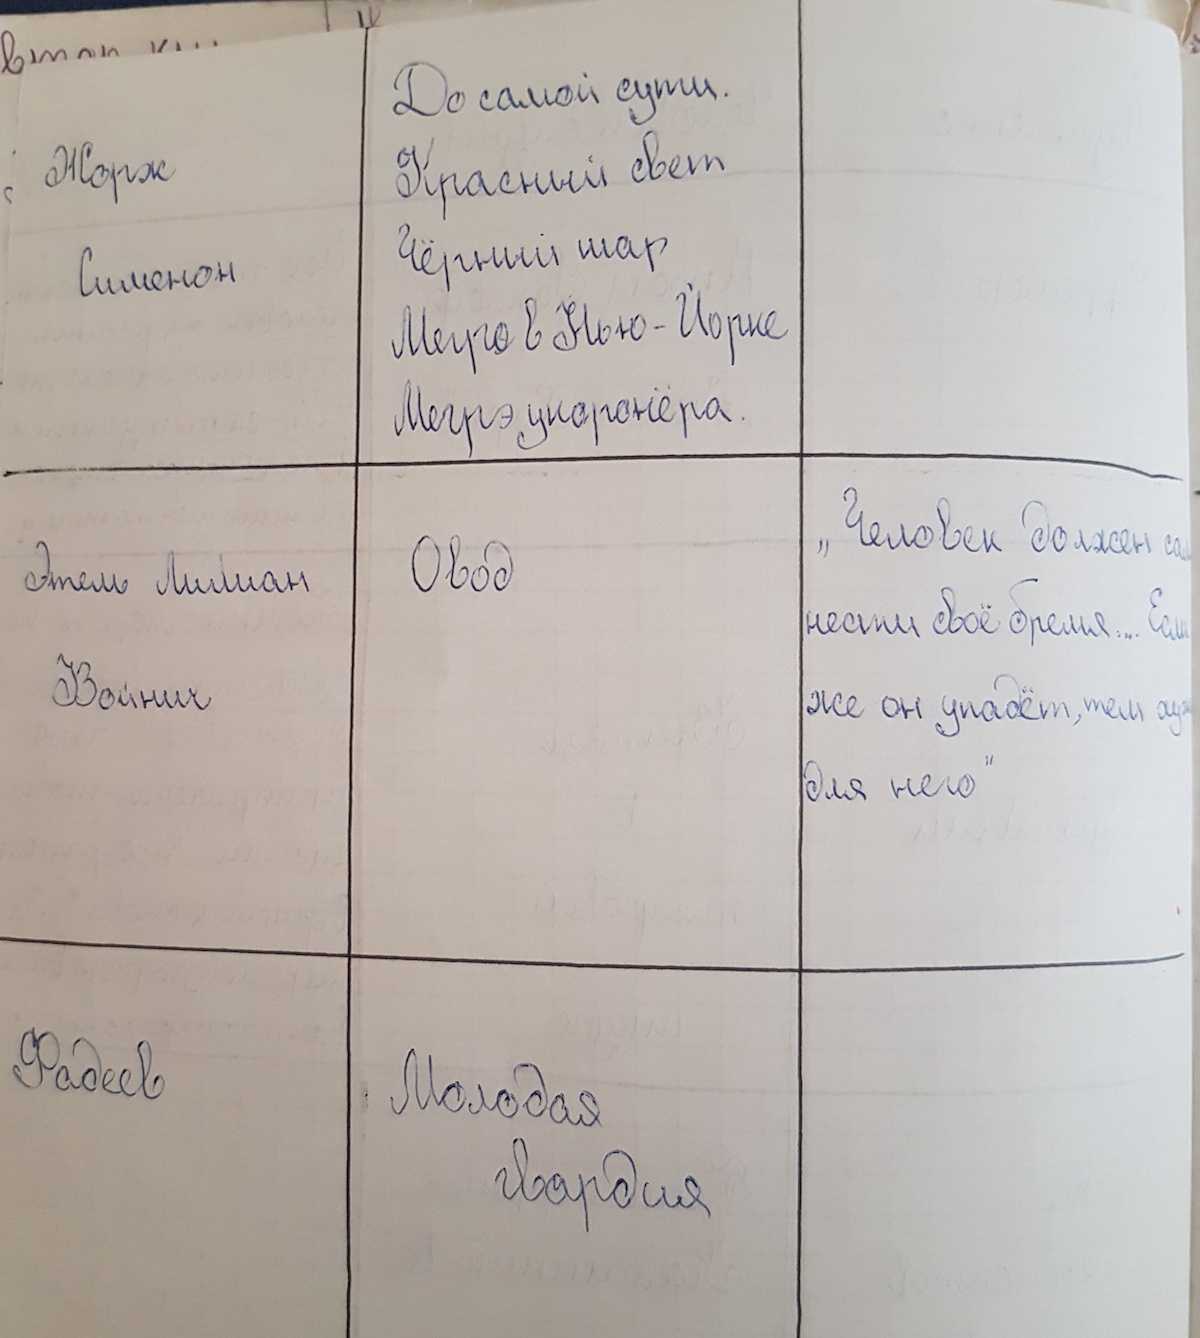 Жорж
Сименон
До самой сути.
Красный свет
Чёрный шар
Мегрэ в Нью-Йорке
Мегрэ у коронёра.
Этель Лилиан
Войнич
Овод
„Человек должен сам
нести своё бремя... Если
же он упадёт, тем
для него"
Фадеев
Молодая
гвардия